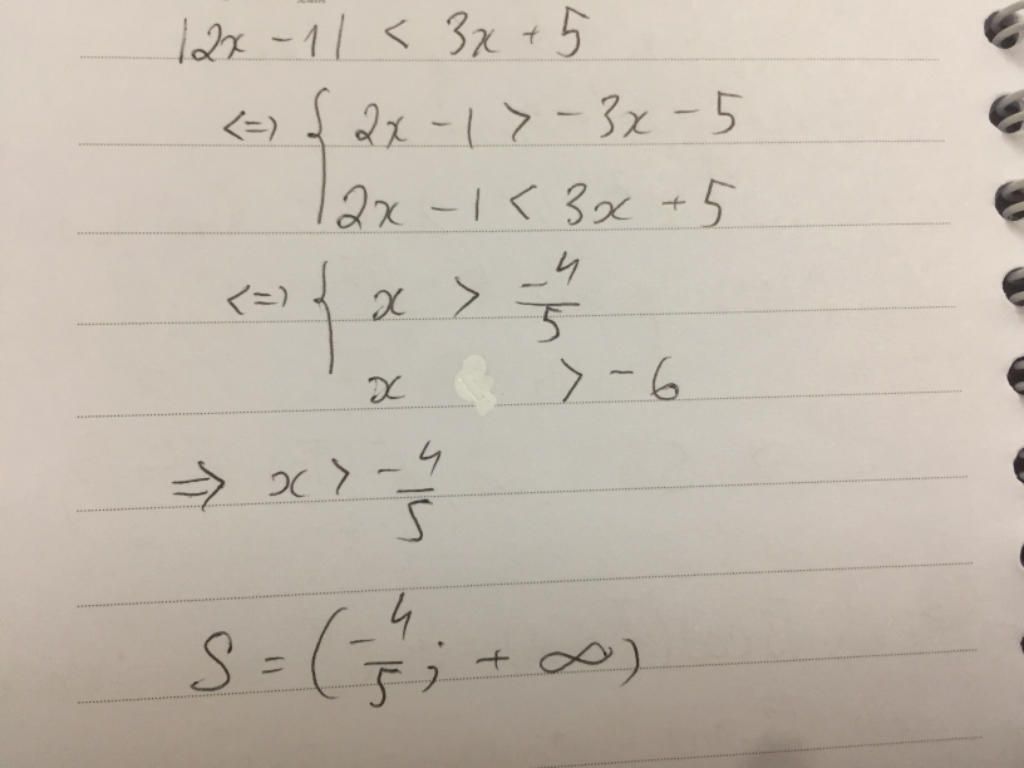 |2x - 1| < 3x + 5
<=> { 2x - 1 > - 3x - 5
2x - 1 < 3x + 5
<=> { x > -4/5
x > - 6
=> x > -4/5
S = (-4/5; + ∞)